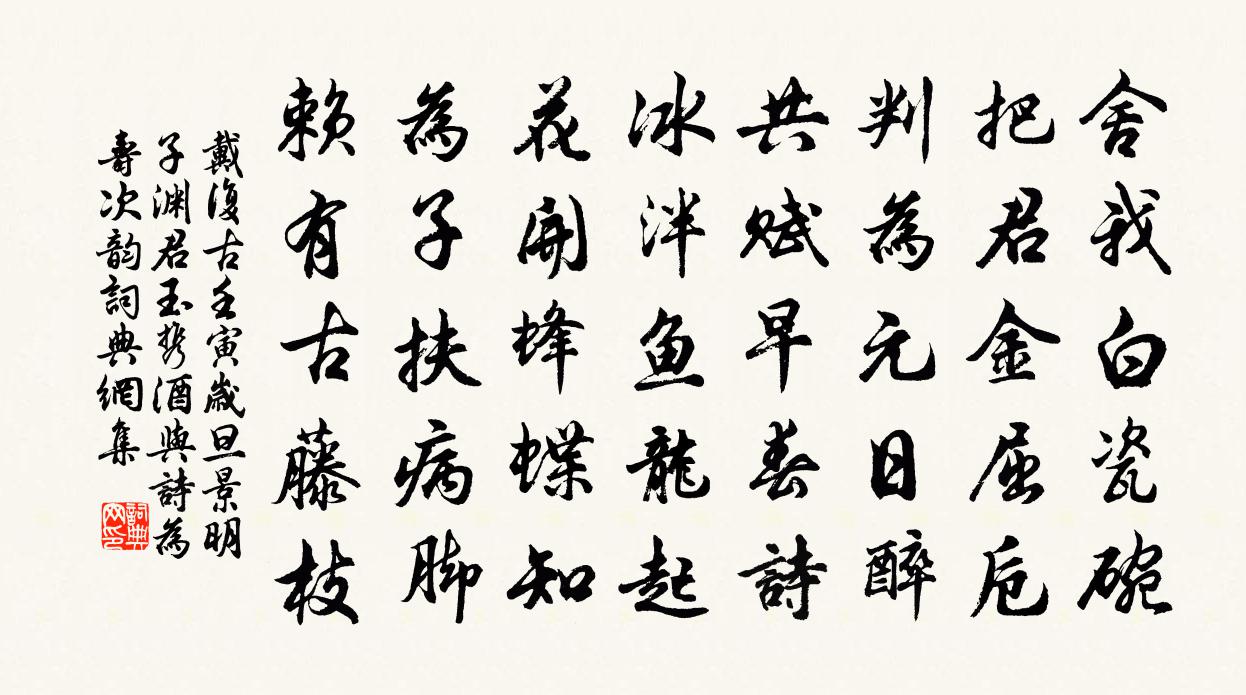 舍我白瓷碗
把君金屈卮
判為元日醉
共賦早春詩
冰泮魚龍起
花開蜂蝶知
為子扶病腳
賴有古藤枝
戴復古壬寅歲旦景明
子渊君玉攜酒與詩為
壽次韵詞典網集
詞典
网印